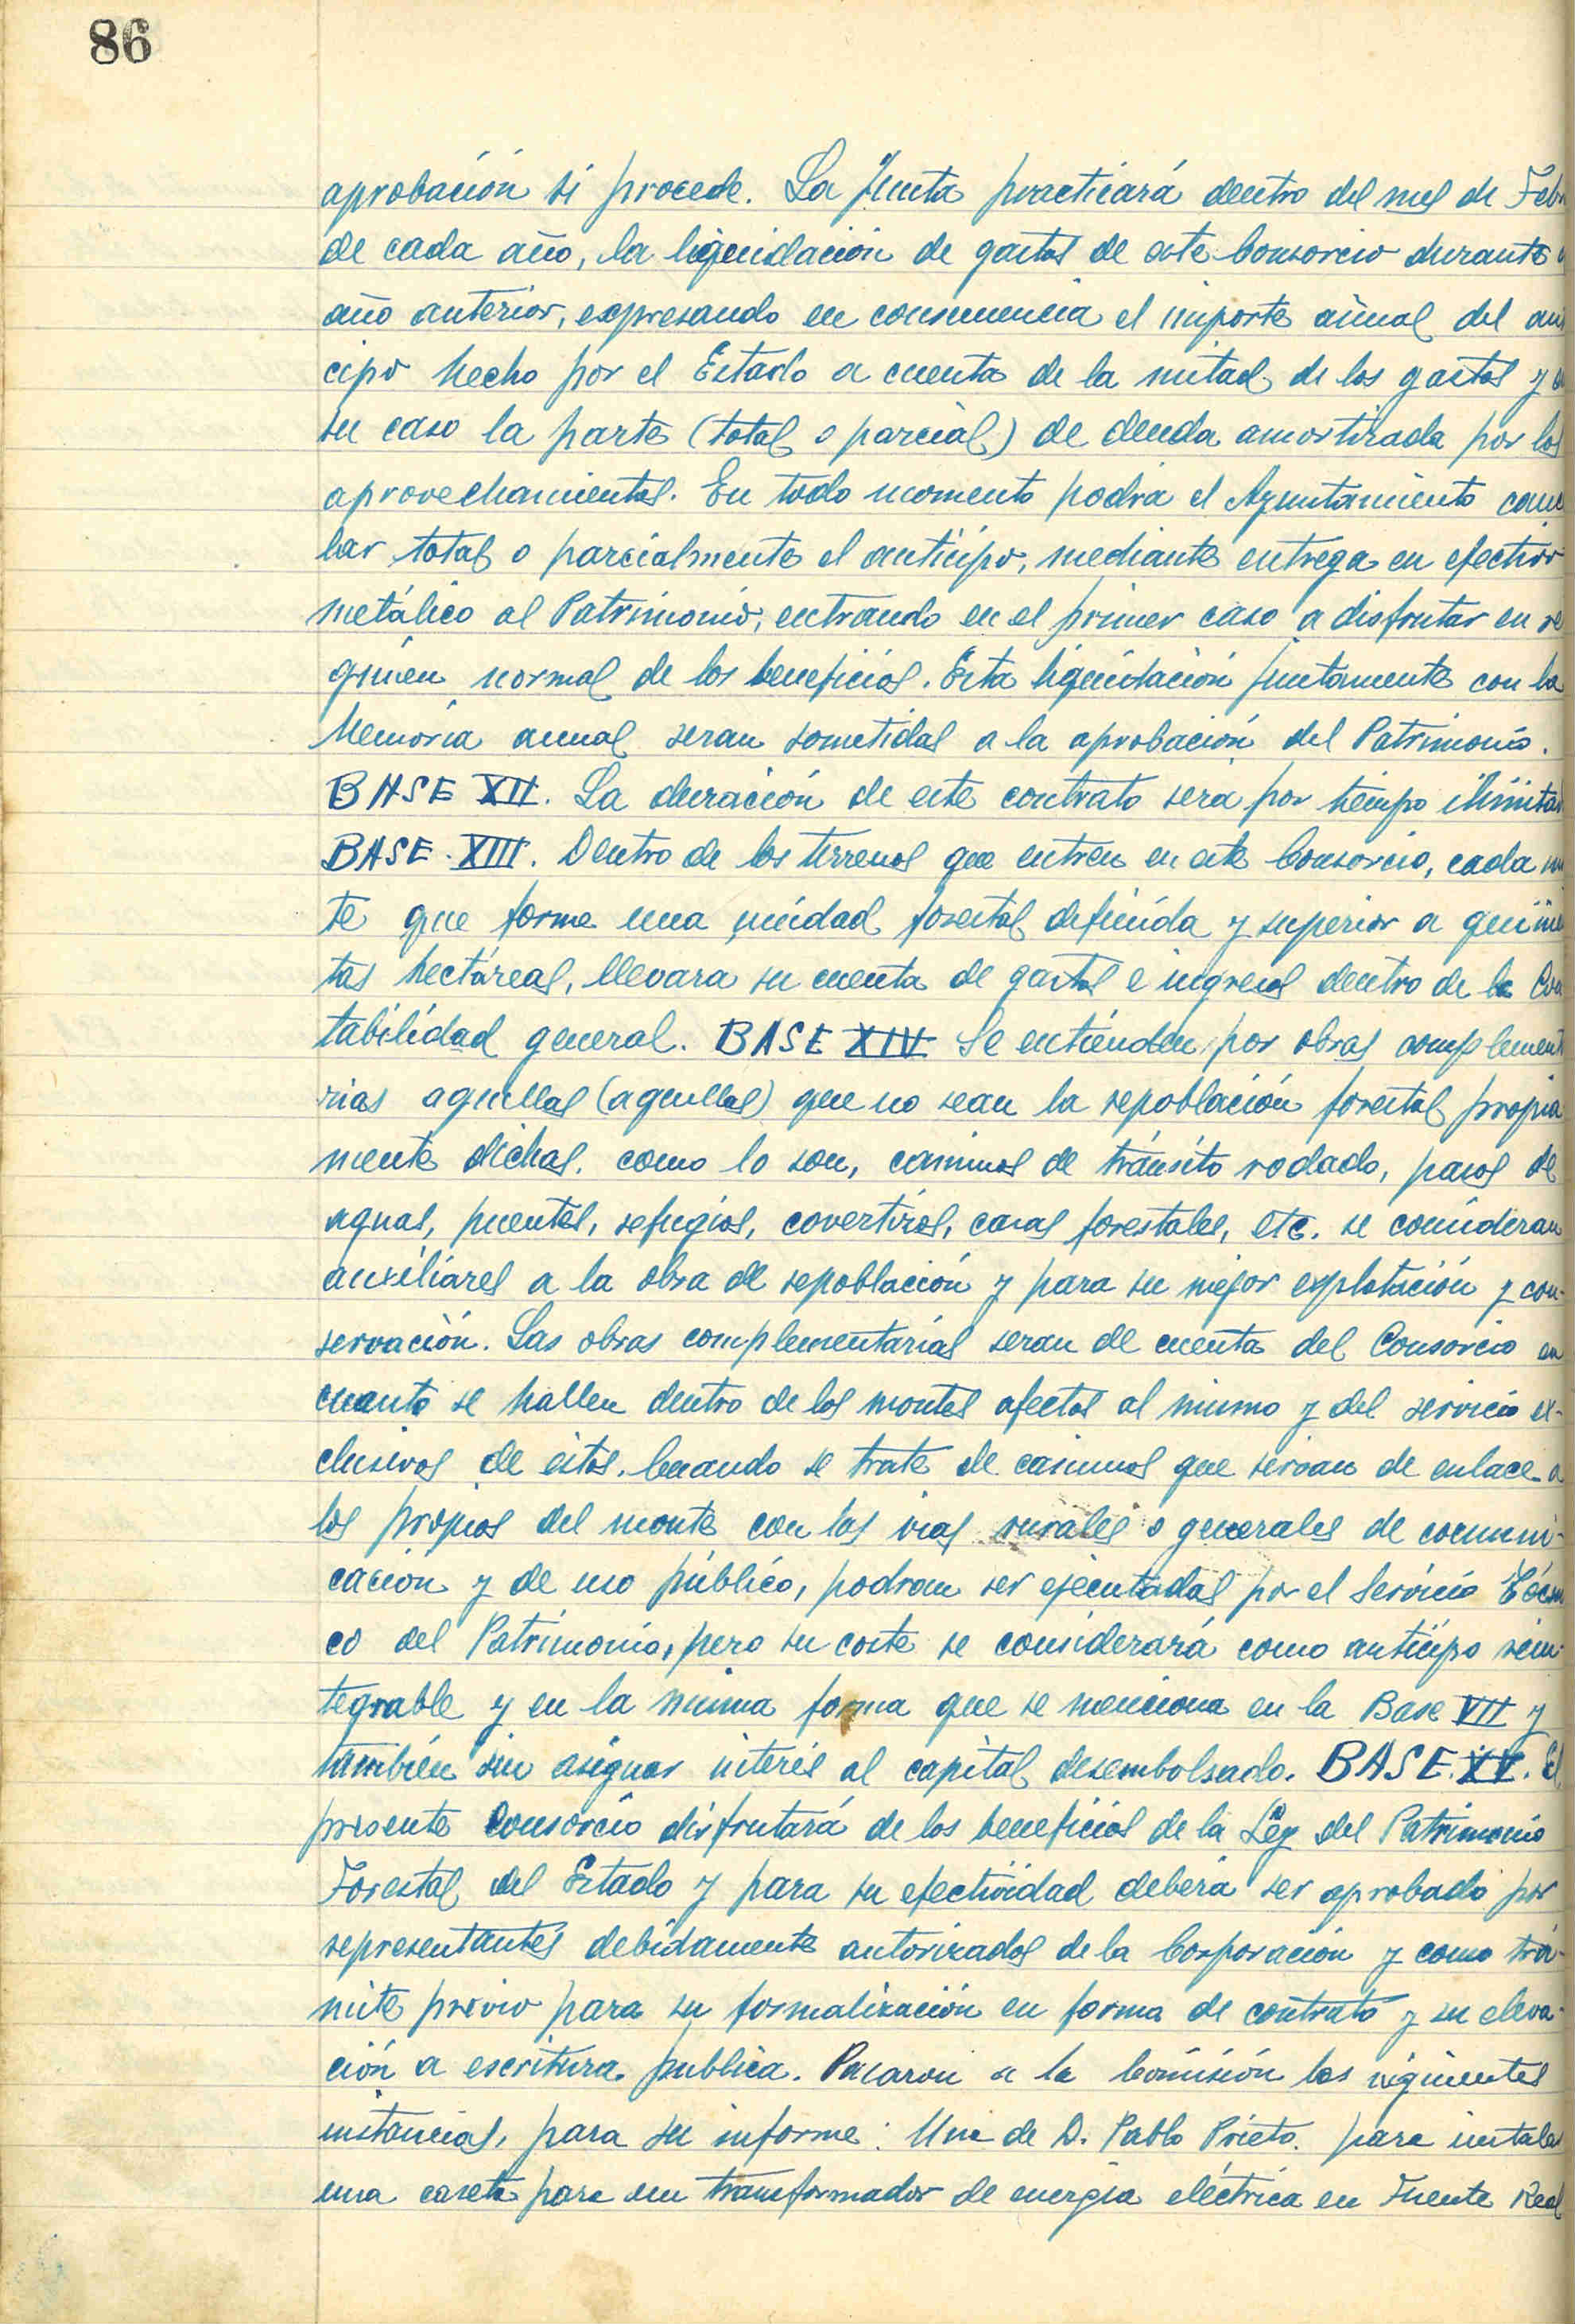 86
aprobación si procede. La Junta practicará dentro del mes de Feb
de cada año, la liquidación de gastos de este Consorcio durante
año anterior, expresando en consecuencia el importe anual del an
cipo hecho por el Estado a cuenta de la mitad de los gastos y
su caso la parte (total o parcial) de deuda amortizada por los
aprovechamientos. En todo momento podrá el Ayuntamiento canc
lar total o parcialmente el anticipo, mediante entrega en efectivo
metálico al Patrimonio, entrando en el primer caso a disfrutar en re
gimen normal de los beneficios. Esta liquidación juntamente con la
Memoria anual seran sometidas a la aprobación del Patrimonio.
BASE XII. La duración de este contrato será por tiempo ilimitad
BASE XIII. Dentro de los terrenos que entren en este Consorcio, cada
te que forme una unidad forestal definida y superior a quinie
tas hectáreas, llevara su cuenta de gastos e ingresos dentro de la Con
tabilidad general. BASE XIV Se entienden por obras complement
rias aquellas (aquellas) que no sean la repoblación forestal propia
mente dichas. como lo son, caminos de tránsito rodado, pasos de
aguas, puentes, refugios, covertizos, casas forestales, etc. se consideran
auxiliares a la obra de repoblación y para su mejor explotación y con-
servación. Las obras complementarias seran de cuenta del Consorcio en
cuanto se hallen dentro de los montes afectos al mismo y del servicio ex-
clusivos de éstos. Cuando se trate de caminos que sirvan de enlace a
los propios del monte con las vias rurales o generales de comuni-
cación y de uso público, podran ser ejecutadas por el Servicio Técni
co del Patrimonio, pero su coste se considerará como anticipo rein-
tegrable y en la misma forma que se menciona en la Base VII y
también sin asignar interés al capital desembolsado. BASE. XV. El
presente Consorcio disfrutará de los beneficios de la Ley del Patrimonio
Forestal del Estado y para su efectividad deberá ser aprobado por
representantes debidamente autorizados de la Corporación y como trá-
mite previo para su formalización en forma de contrato y su eleva-
ción a escritura publica. Pasaron a la Comisión las siguientes
instancias, para su informe: Una de D. Pablo Prieto. para instalar
una caseta para un transformador de energía eléctrica en Fuente Real